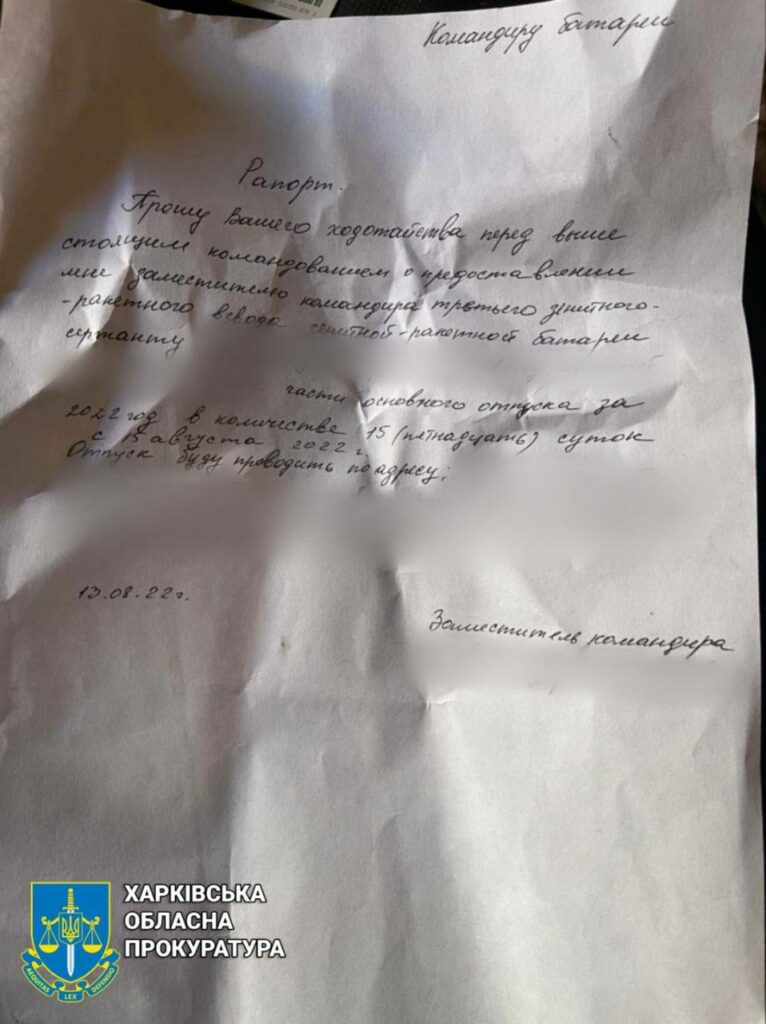 Командиру батареи
Рапорт.
Прошу Вашего ходотайства перед выше
стоящим командованием о предоставлении
мне заместителю командира третьего зенитного-
-ракетного взвода зенитной-ракетной батареи
сержанту
части основного отпуска за
2022 год в количестве 15 (пятнадцать) суток
с 15 августа 2022 г.
Отпуск буду проводить по адресу:
13.08.22г.
Заместитель командира
ХАРКІВСЬКА
ОБЛАСНА
ПРОКУРАТУРА
AEQUITAS LEX DEFENSIO